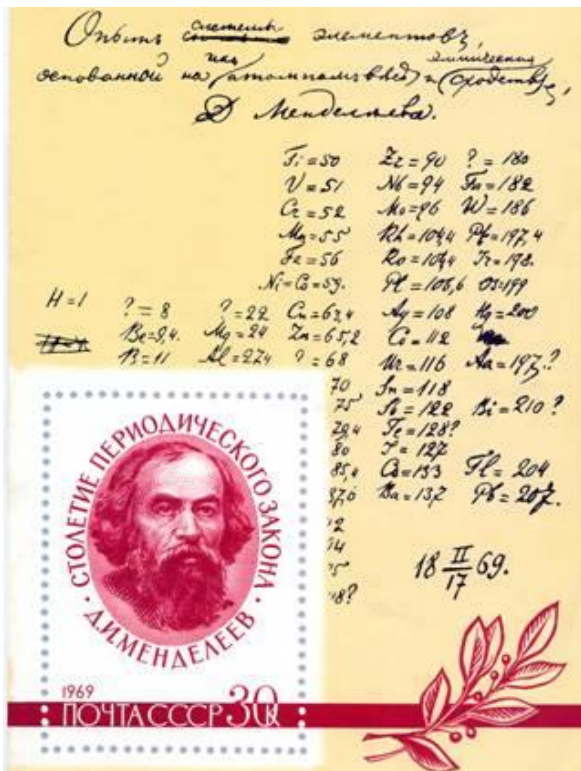 Опытъ системы элементовъ,
основанной на ихъ атомномъ вѣсѣ и химическомъ сходствѣ,
Д Менделѣева.
Ti=50 Zr=90 ?=180
V=51 Nb=94 Ta=182
Cr=52 Mo=96 W=186
Mn=55 Rh=104,4 Pt=197,4
Fe=56 Ro=104,4 Ir=198.
Ni=Co=59. Pl=106,6 Os=199
H=1 ?=8 ?=22 Cu=63,4 Ag=108 Hg=200
Be=9,4. Mg=24 Zn=65,2 Cd=112
B=11 Al=27,4 ?=68 Ur=116 Au=197?
70 Sn=118
75 Sb=122 Bi=210?
79,4 Te=128?
80 J=127
85,4 Cs=133 Tl=204
87,6 Ba=137 Pb=207.
18 II/17 69.
СТОЛЕТИЕ ПЕРИОДИЧЕСКОГО ЗАКОНА
Д.И.МЕНДЕЛЕЕВ
1969
ПОЧТА СССР 30К